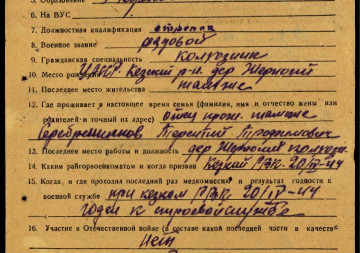 6. На ВУС
7. Должностная квалификация стрелок
8. Военное звание рядовой
9. Гражданская специальность колхозник
10. Место рождения УАССР. Кезский р-н. дер
11. Последнее место жительства
12. Где проживает в настоящее время семья (фамилия, имя и отчество жены или
родителей и точный их адрес) отец прож.
Серебренников Терентий
13. Последнее место работы и должность дер колхоз.
14. Каким райгорвоенкоматом и когда призван Кезский РВК. 20/IV-44
15. Когда, и где проходил последний раз медкомиссию и результат годности к
военной службе при кезком РВК. 20/IV-44
годен к строевой службе
16. Участие в Отечественной войне (в составе какой последней части в качеств
нет